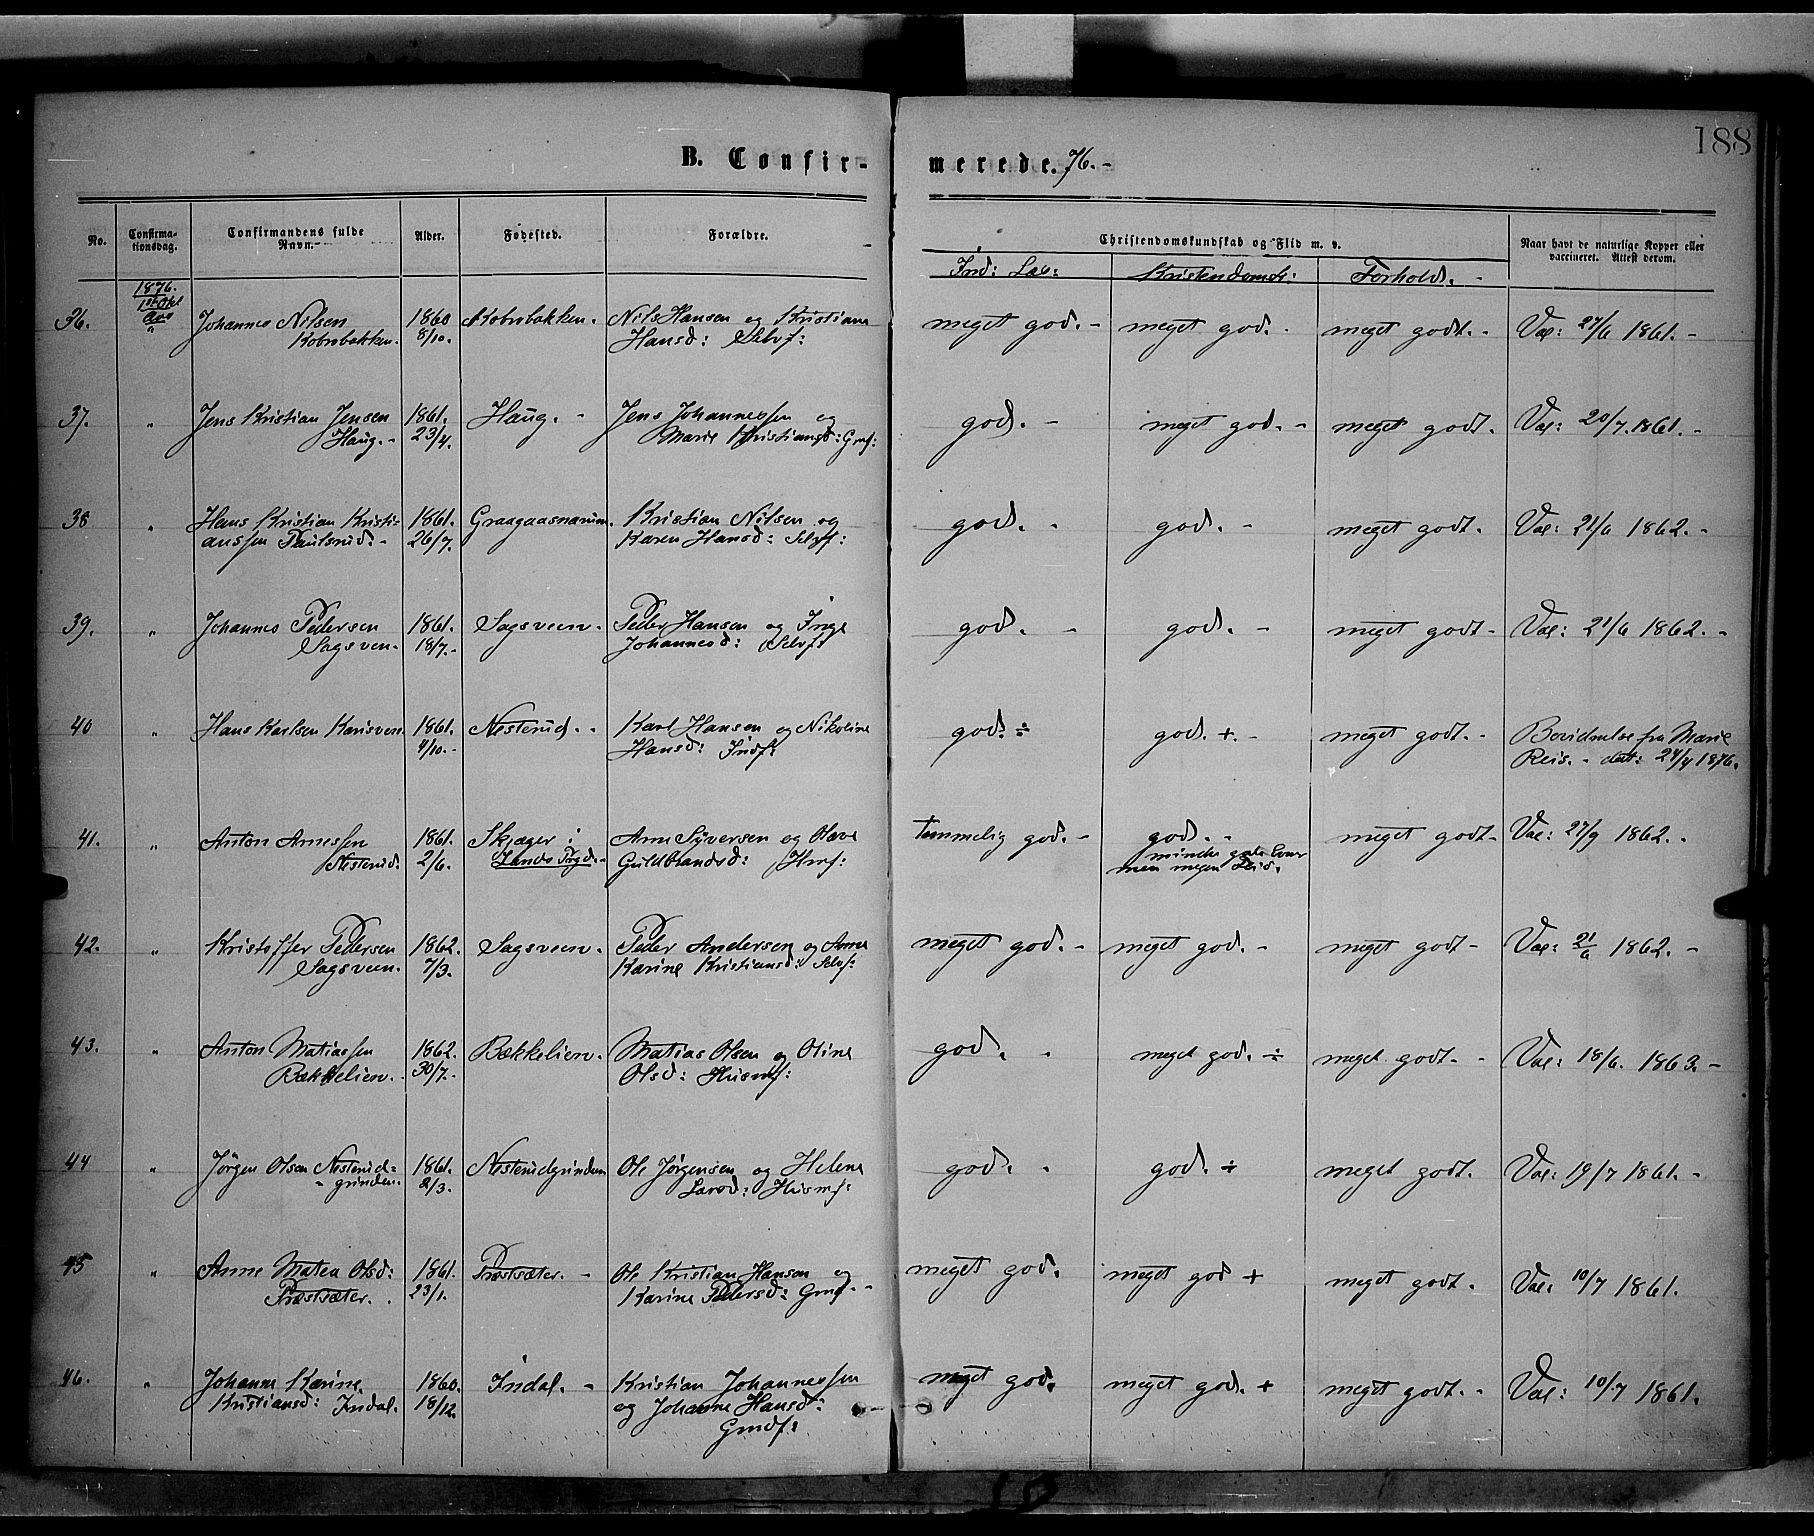 188
B. Confir-
merede. 76.-
No.
Confirma-
tionsdag.
Confirmandens fulde
Navn.
Alder.
Fødested.
Forældre.
Christendomskundskab og Flid m. v.
Naar havt de naturlige Kopper eller
vaccineret. Attest derom.
Ind: Læs:
Kristendomsk:
Forhold. -
1876.
1st Okt
36. " Johannes Nilsen 1860 Kobrobakken. Nils Hansen og Kristiane meget god. - meget god. - meget godt. - Vac: 27/6 1861. -
Kobrobakken. 8/10. Hansd: Selvf:
37. " Jens Kristian Jensen 1861. Haug. - Jens Johannessen og god. - meget god. - meget godt. Vac: 20/7. 1861. -
Haug. - 23/4. Marie Kristiansd: Gmf:
38 " Hans Kristian Kristi= 1861. Graagaasnarum. Kristian Nilsen og god. - god. - meget godt. Vac: 21/6 1862. -
anssen Paulsrud. - 26/7. Karen Hansd: Selvf:
39. " Johannes Pedersen 1861. Sagsveen. Peder Hansen og Inge god. - god. - meget godt - Vac: 21/6 1862. -
Sagsven - 18/7. - Johannesd: Selvf:
40 " Hans Karlsen Karisven 1861. Nesterud. - Karl Hansen og Nikoline god. ÷ god. + - meget godt. - Bevidnelse fra Marie
4/10. - Hansd: Indf: Reis. - dat: 24/4 1876.
41. " Anton Arnessen 1861. Skjager i Arne Syversen og Olave temmelig god. - god. - meget godt - Vac: 27/9 1862. -
Nesterud. 2/6. Lands Prgd. - Guldbrandsd: Hmf: mindre gode Evner
men megen Flid.
42. " Kristoffer Pedersen 1862. Sagsveen. Peder Andersen og Anne meget god. - meget god. - meget godt - Vac: 21/6 1862. -
Sagsveen. 7/3. Karine Kristiansd: Selvf:
43. " Anton Matiassen 1862. Bækkelien. Matias Olsen og Oline god. - meget god. ÷ meget godt. - Vac: 18/6. 1863. -
Bækkelien. 30/7. - Olsd: Husmf:
44 " Jørgen Olsen Nesterud= 1861. Nesterudgrinden Ole Jørgensen og Helene god. - god. ÷ meget godt. Vac: 19/7 1861. -
grinden. 2/3. Larsd: Husmf:
45 " Anne Matea Olsd: 1861. Præstsæter. - Ole Kristian Hansen og meget god. meget god + meget godt. Vac: 10/7 1861.
Præstsæter. 23/1. Karine Pedersd: Gmf. -
46. " Johanne Karine 1860. Indal. - Kristian Johannessen meget god. meget god. + meget godt. - Vac: 10/7 1861.
Kristiansd: Indal. 18/12. og Johanne Hansd:
Gmdf: